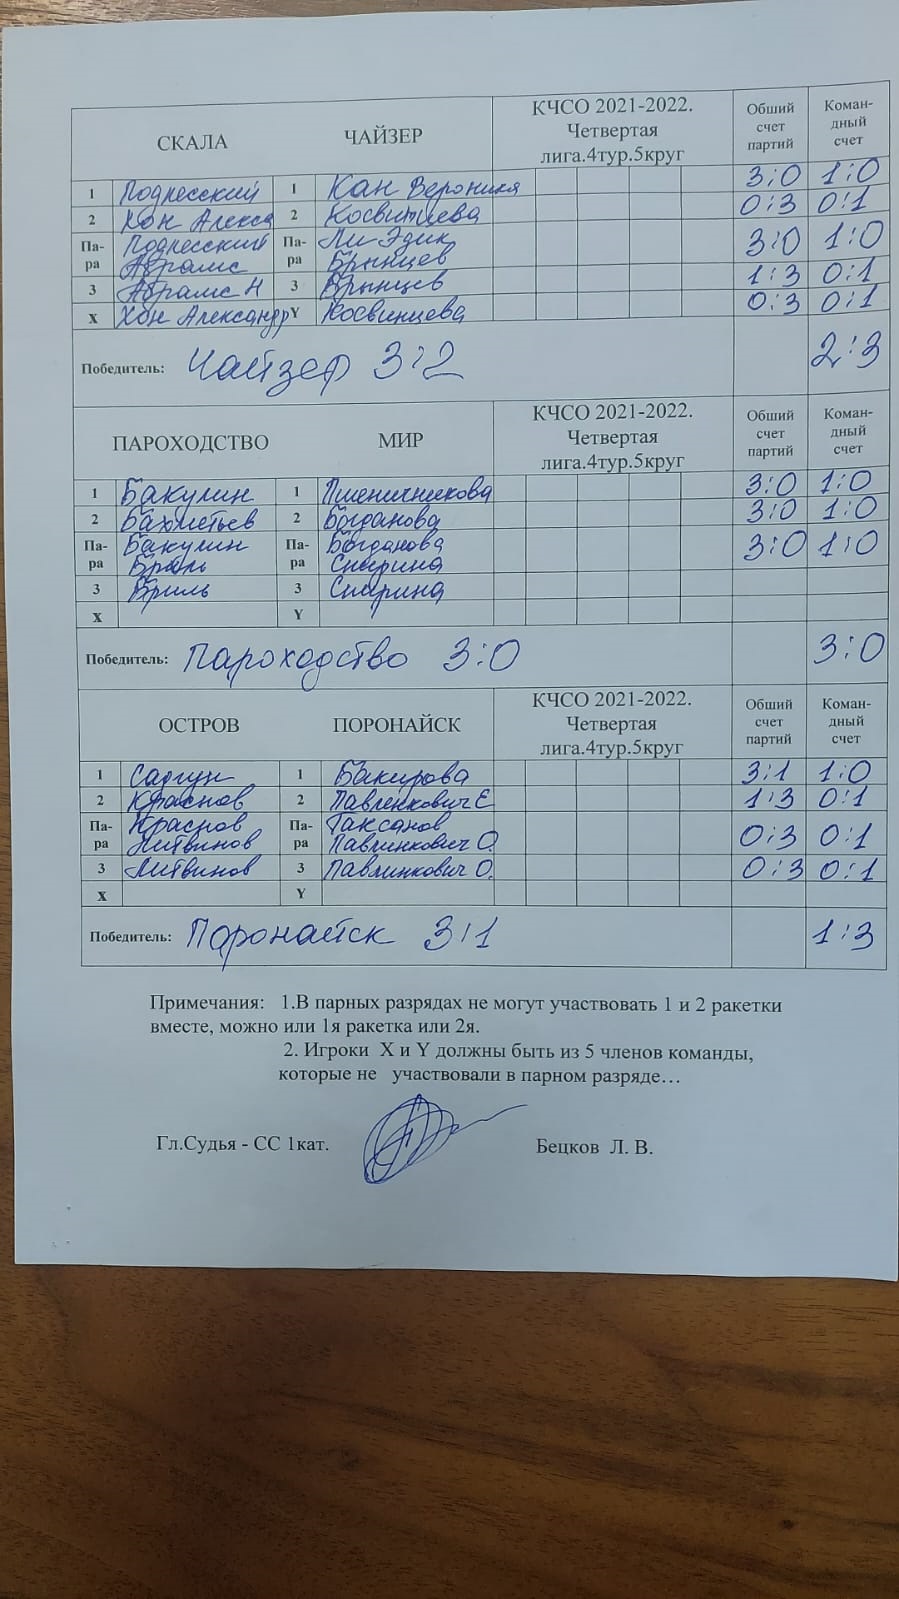 СКАЛА ЧАЙЗЕР КЧСО 2021-2022. Четвертая лига.4тур.5круг Обший счет партий Коман-дный счет
1 Подлесский 1 Кан Вероника 3:0 1:0
2 Хон Алекса 2 Косвинцева 0:3 0:1
Па-ра Подлесский Па-ра Ли Эдик 3:0 1:0
Абрамс Брынцев
3 Абрамс Н 3 Брынцев 1:3 0:1
X Хон Александр Y Косвинцева 0:3 0:1
Победитель: Чайзер 3:2 2:3
ПАРОХОДСТВО МИР КЧСО 2021-2022. Четвертая лига.4тур.5круг Обший счет партий Коман-дный счет
1 Бакулин 1 Пшеничникова 3:0 1:0
2 Бахметьев 2 Богданова 3:0 1:0
Па-ра Бакулин Па-ра Богданова 3:0 1:0
Бриль Спирина
3 Бриль 3 Спирина
X Y
Победитель: Пароходство 3:0 3:0
ОСТРОВ ПОРОНАЙСК КЧСО 2021-2022. Четвертая лига.4тур.5круг Обший счет партий Коман-дный счет
1 1 Бакирова 3:1 1:0
2 Краснов 2 Павленкович Е 1:3 0:1
Па-ра Краснов Па-ра Гаксанов 0:3 0:1
Литвинов Павлинкович О.
3 Литвинов 3 Павлинкович О. 0:3 0:1
X Y
Победитель: Поронайск 3:1 1:3
Примечания: 1.В парных разрядах не могут участвовать 1 и 2 ракетки
вместе, можно или 1я ракетка или 2я.
2. Игроки X и Y должны быть из 5 членов команды,
которые не участвовали в парном разряде…
Гл.Судья - СС 1кат. Бецков Л. В.